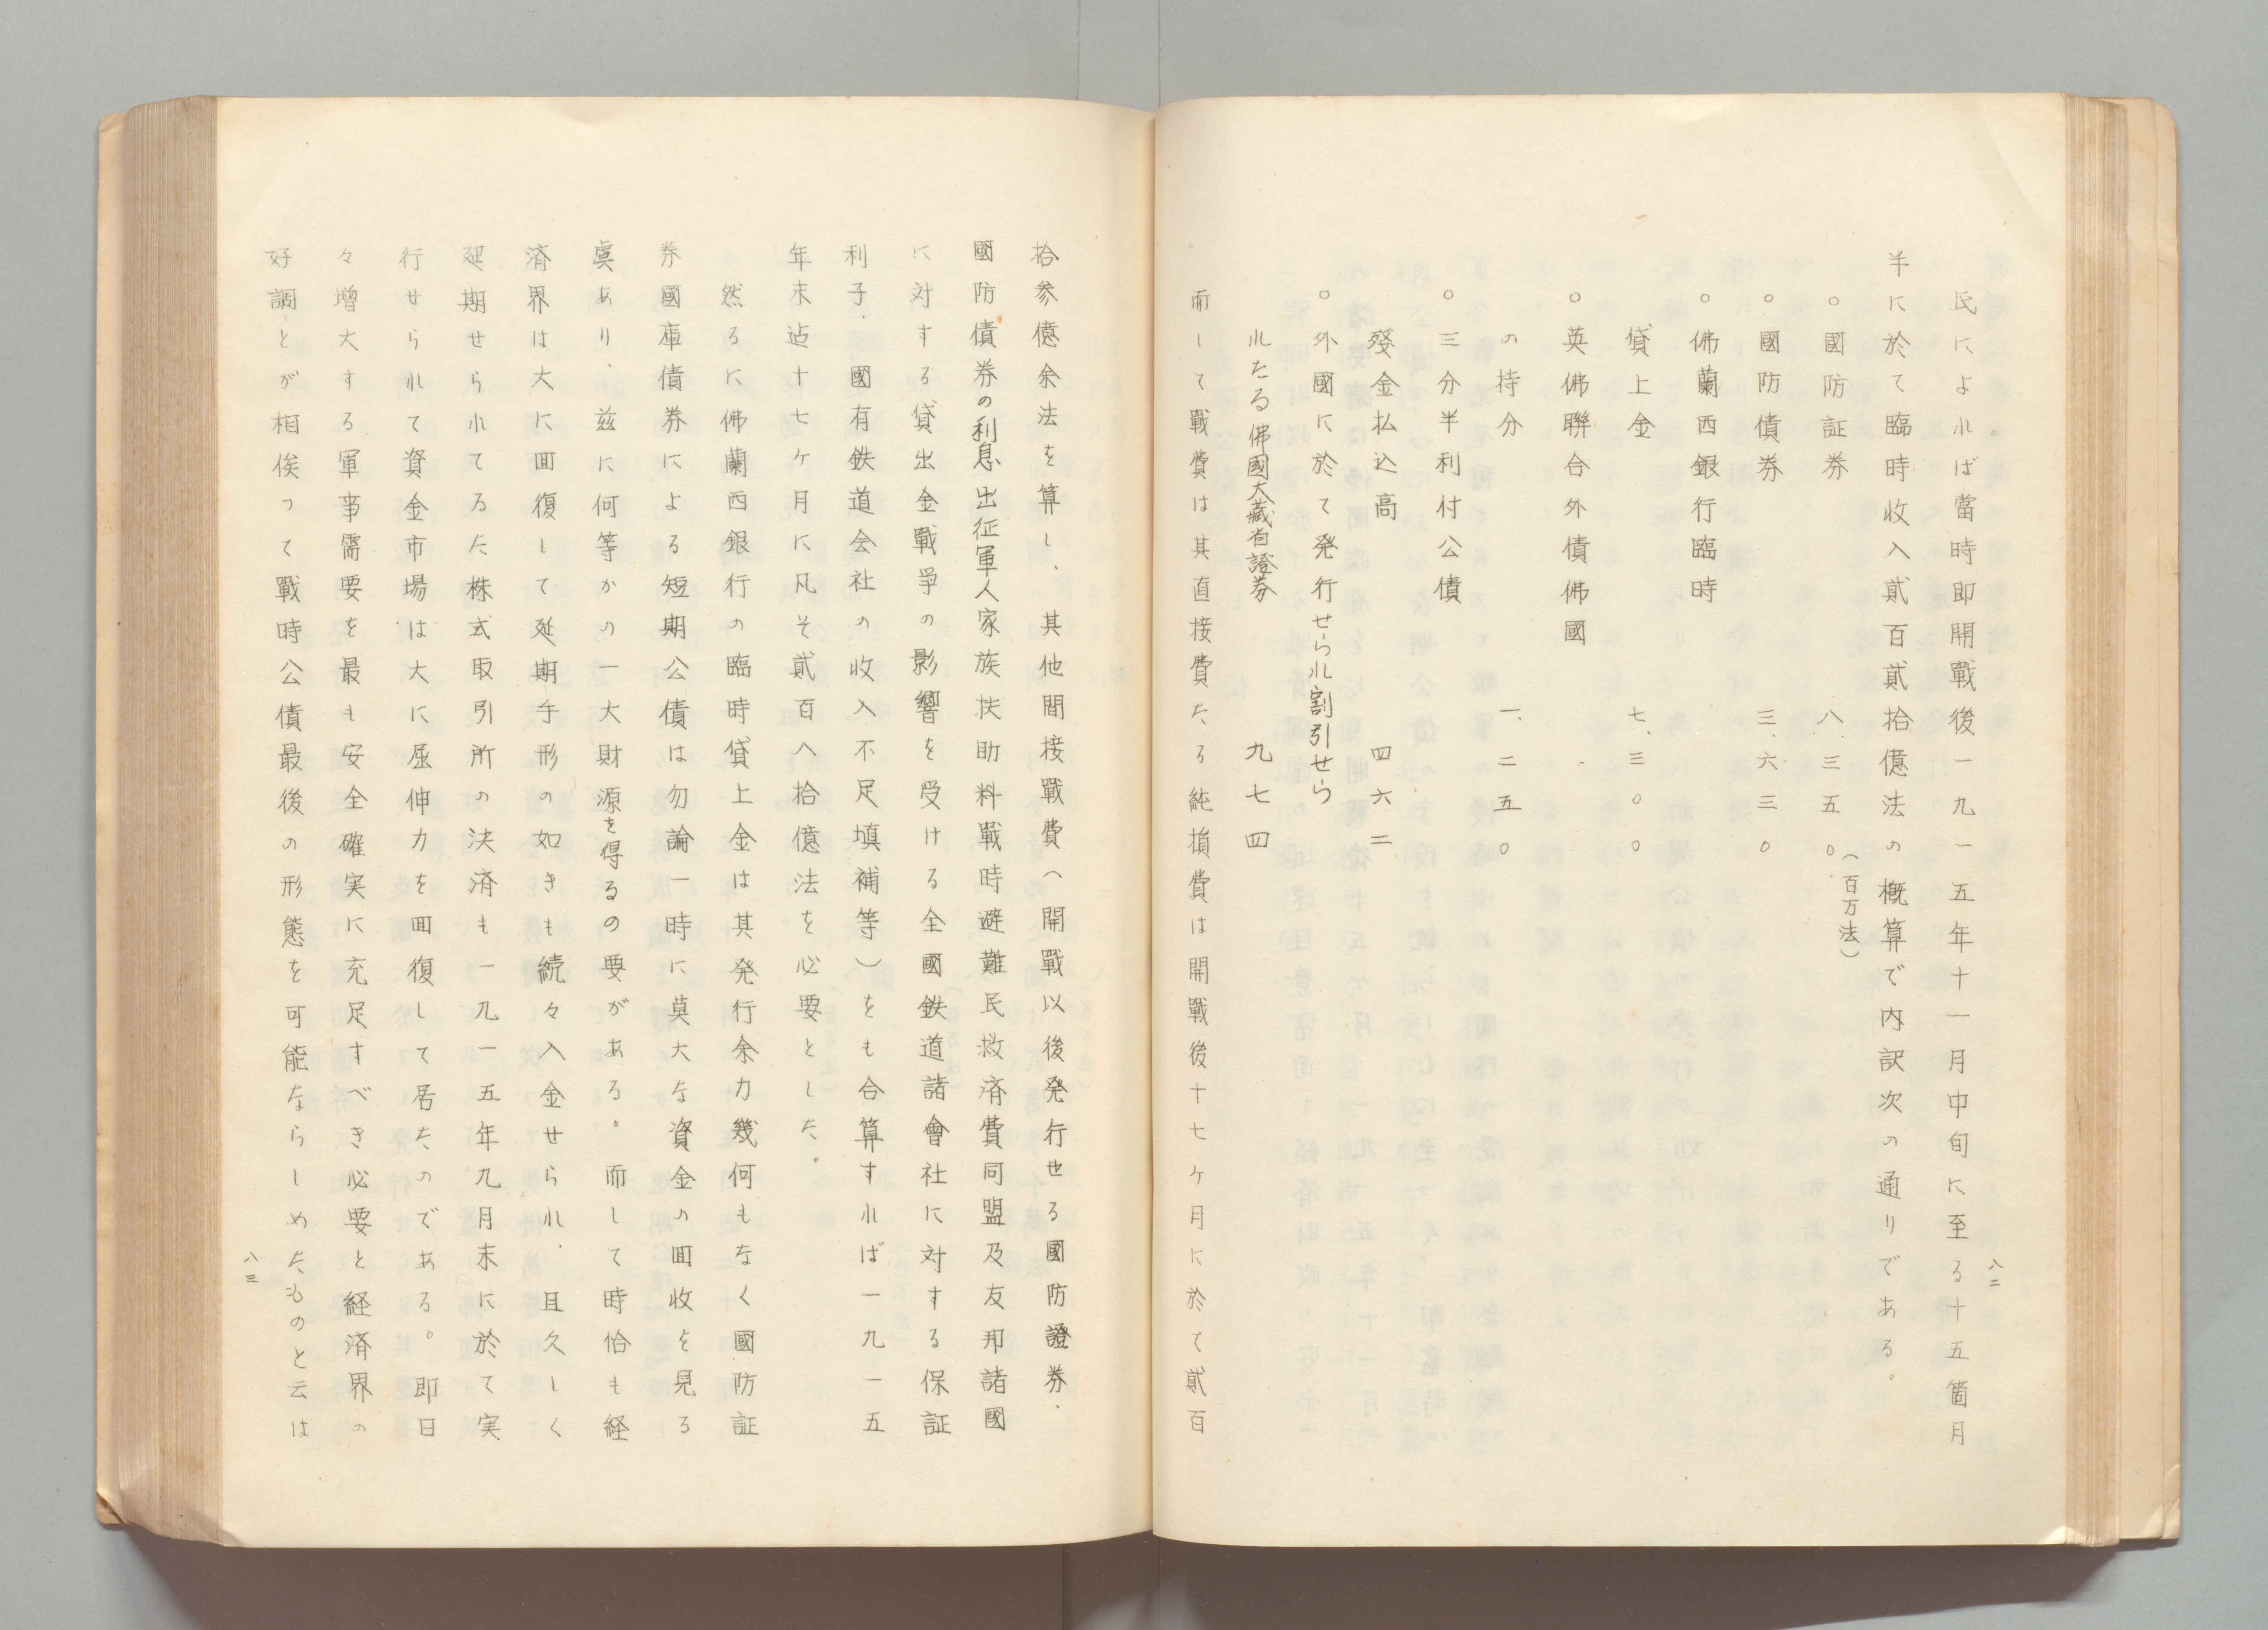 八二
民によれば當時即開戰後一九一五年十一月中旬に至る十五箇月
半に於て臨時收入貳百貳拾億法の概算で内訳次の通りである。
○國防証券　八、三五〇（百万法）
○國防債券　三、六三〇
○佛蘭西銀行臨時
貸上金　七、三〇〇
○英佛聯合外債佛國
の持分　一、二五〇
○三分半利付公債
殘金払込高　四六二
○外國に於て発行せられ割引せら
れたる佛國大藏省證券　九七四
而して戰費は其直接費たる純損費は開戰後十七ヶ月に於て貳百
拾参億余法を算し、其他間接戰費（開戰以後発行せる國防證券、
國防債券の利息出征軍人家族扶助料戰時避難民救済費同盟及友邦諸國
に対する貸出金戰爭の影響を受ける全國鉄道諸會社に対する保証
利子、國有鉄道会社の收入不足填補等）をも合算すれば一九一五
年末迠十七ヶ月に凡そ貳百八拾億法を必要とした。
然るに佛蘭西銀行の臨時貸上金は其発行余力幾何もなく國防証
券國庫債券による短期公債は勿論一時に莫大な資金の回收を見る
虞あり、茲に何等かの一大財源を得るの要がある。而して時恰も経
済界は大に回復して延期手形の如きも続々入金せられ、且久しく
延期せられてゐた株式取引所の決済も一九一五年九月末に於て実
行せられて資金市場は大に屈伸力を回復して居たのである。即日
々増大する軍事需要を最も安全確実に充足すべき必要と経済界の
好調とが相俟つて戰時公債最後の形態を可能ならしめたものと云は
八三